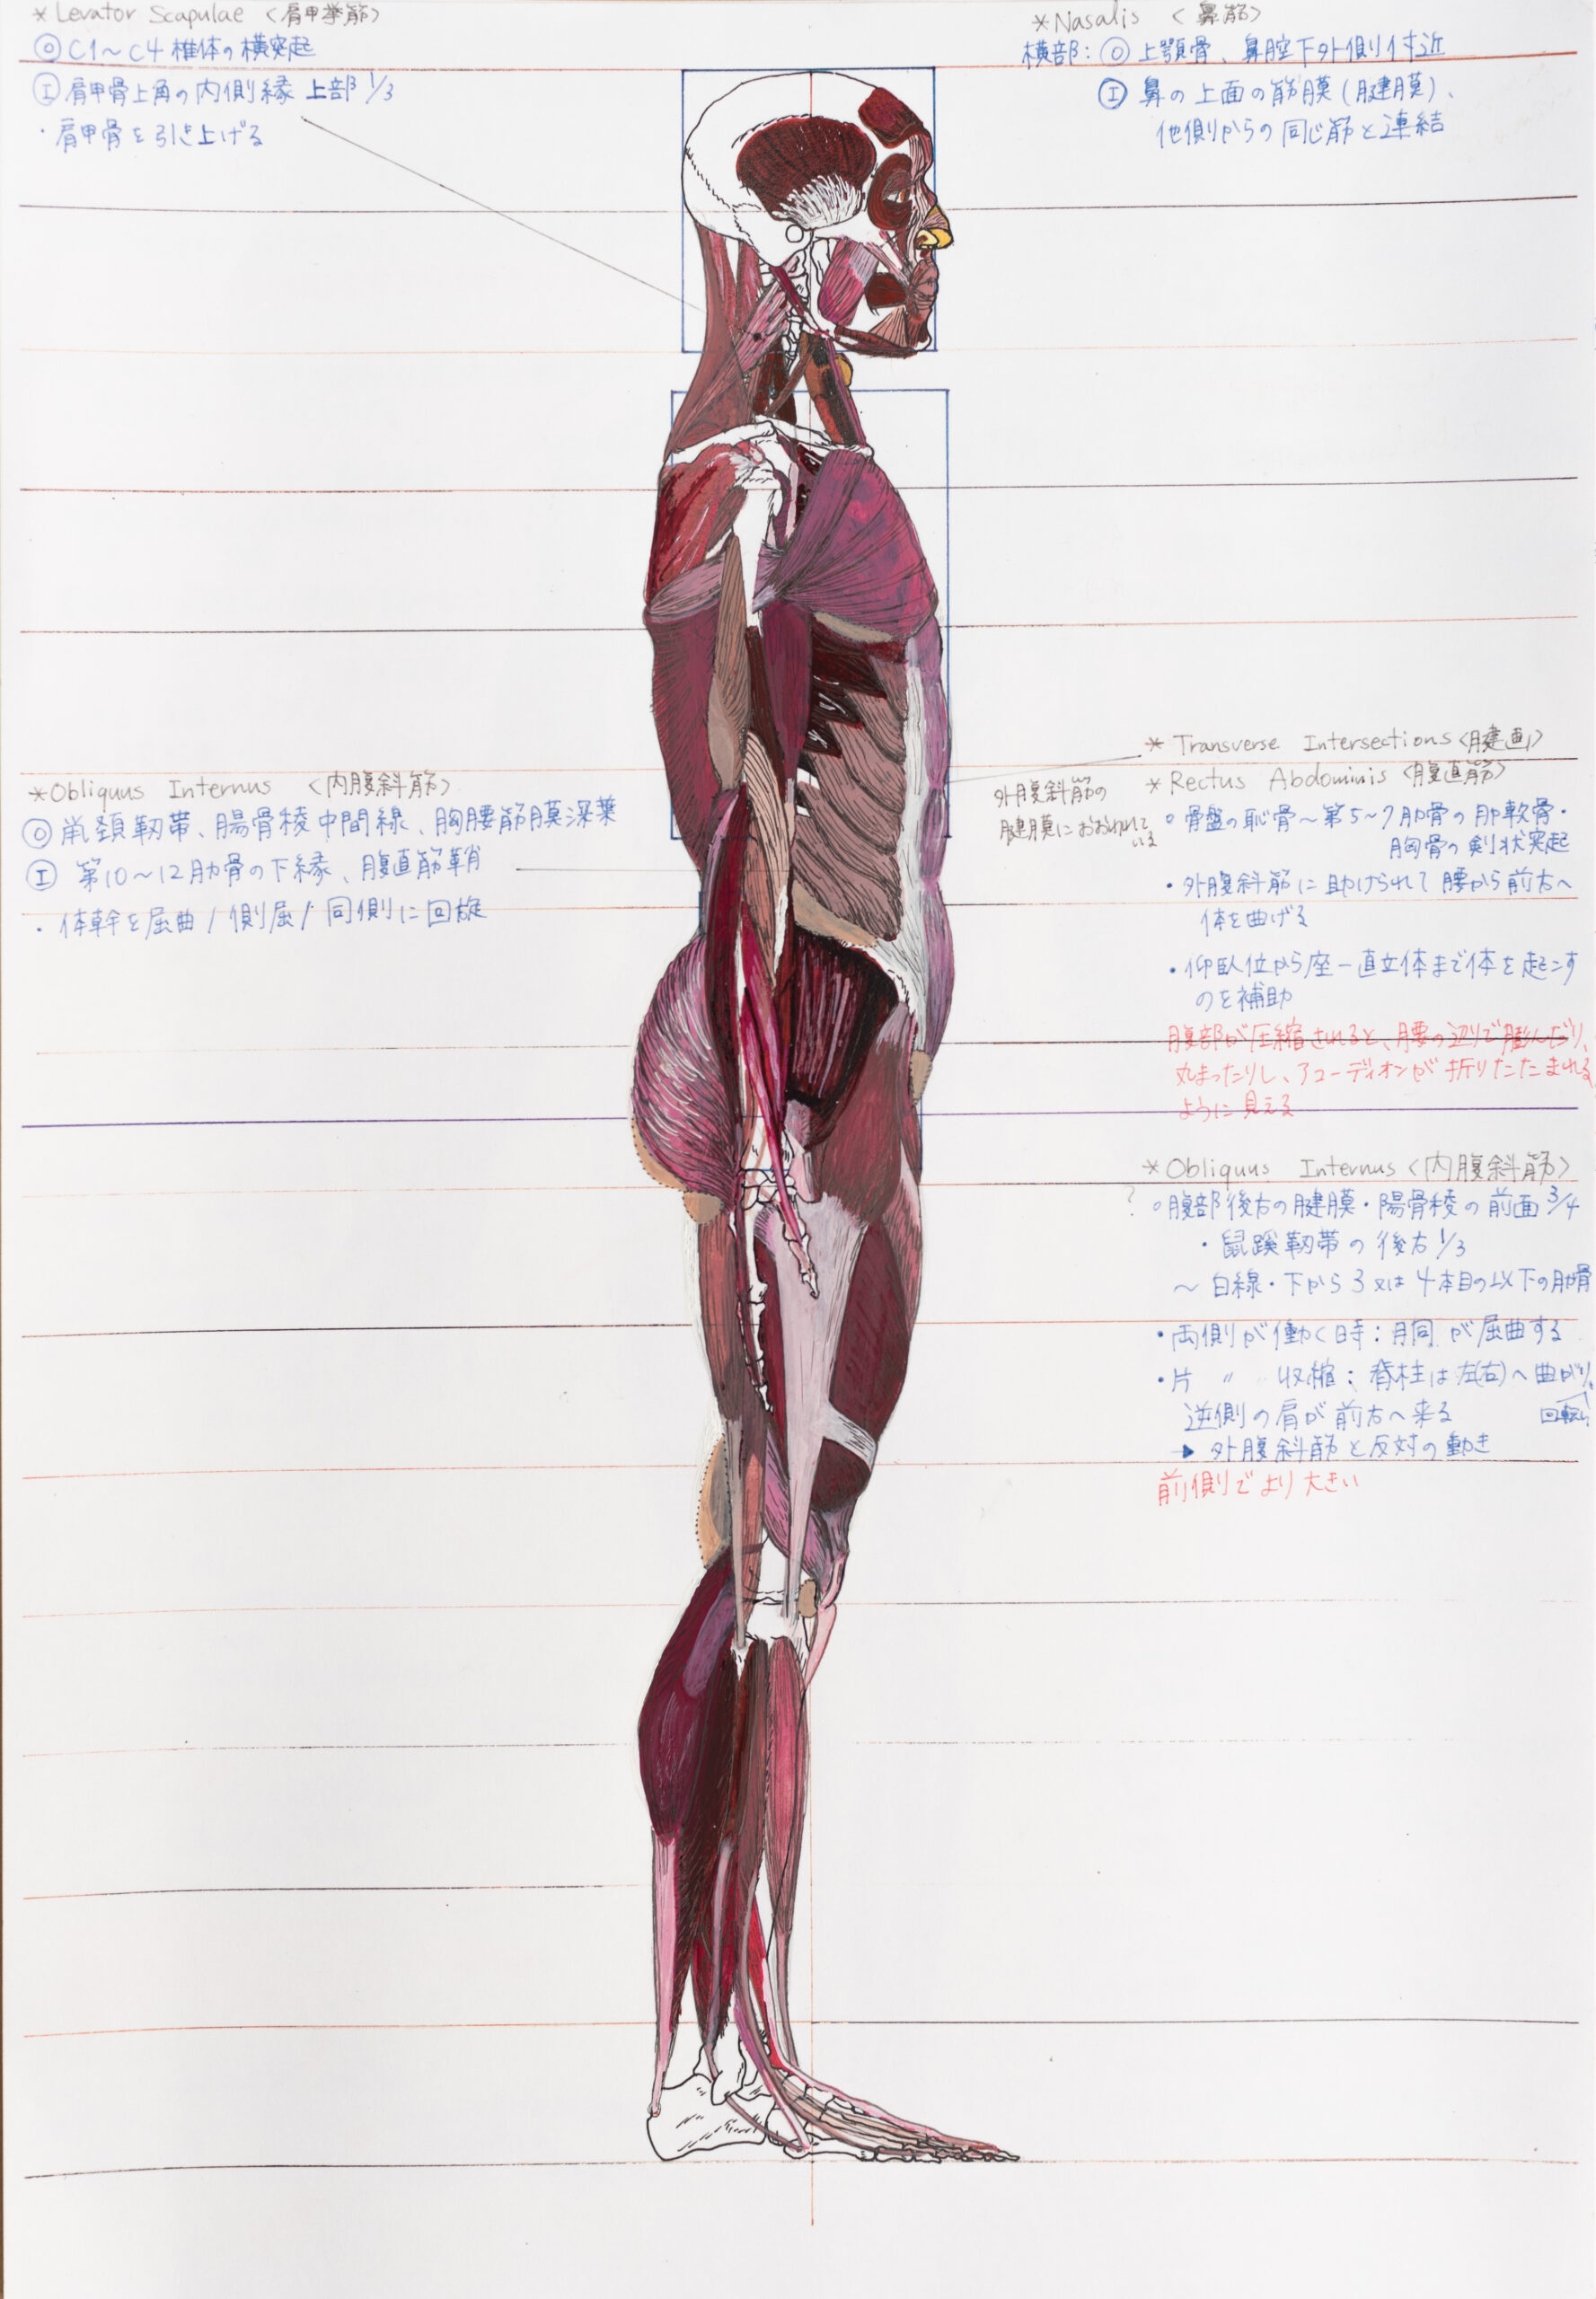 *Levator Scapulae <肩甲挙筋>
Ⓞ C1～C4 椎体の横突起
Ⓘ 肩甲骨上角の内側縁 上部 1/3
・肩甲骨を引き上げる
*Nasalis <鼻筋>
横部: Ⓞ 上顎骨、鼻腔下外側付近
Ⓘ 鼻の上面の筋膜(腱膜)、
他側からの同じ筋と連結
*Obliquus Internus <内腹斜筋>
Ⓞ 鼡頚靭帯、腸骨稜中間線、胸腰筋膜深葉
Ⓘ 第10～12肋骨の下縁、腹直筋鞘
・体幹を屈曲/側屈/同側に回旋
* Transverse Intersections <腱画>
* Rectus Abdominis <腹直筋>
外腹斜筋の
腱膜におおわれて
いる
○骨盤の恥骨～第5～7肋骨の肋軟骨・
胸骨の剣状突起
・外腹斜筋に助けられて腰から前方へ
体を曲げる
・仰臥位から座-直立体まで体を起こす
のを補助
腹部が圧縮されると、腰の辺りで膨んだり、
丸まったりし、アコーディオンが折りたたまれる
ように見える
*Obliquus Internus <内腹斜筋>
? ○腹部後方の腱膜・腸骨稜の前面 3/4
・鼠蹊靭帯の後方 1/3
～白線・下から3又は4本目の以下の肋骨
・両側が働く時：胴が屈曲する
・片 〃 収縮：脊柱は左(右)へ曲がり、
回転し
逆側の肩が前方へ来る
▶ 外腹斜筋と反対の動き
前側でより大きい